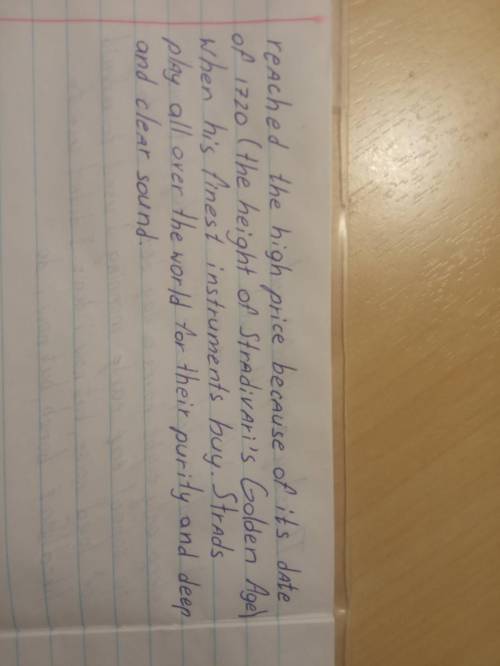 reached the high price because of its date
of 1720 (the height of Stradivari's Golden Age)
when his finest instruments buy. Strads
play all over the world for their purity and deep
and clear sound.